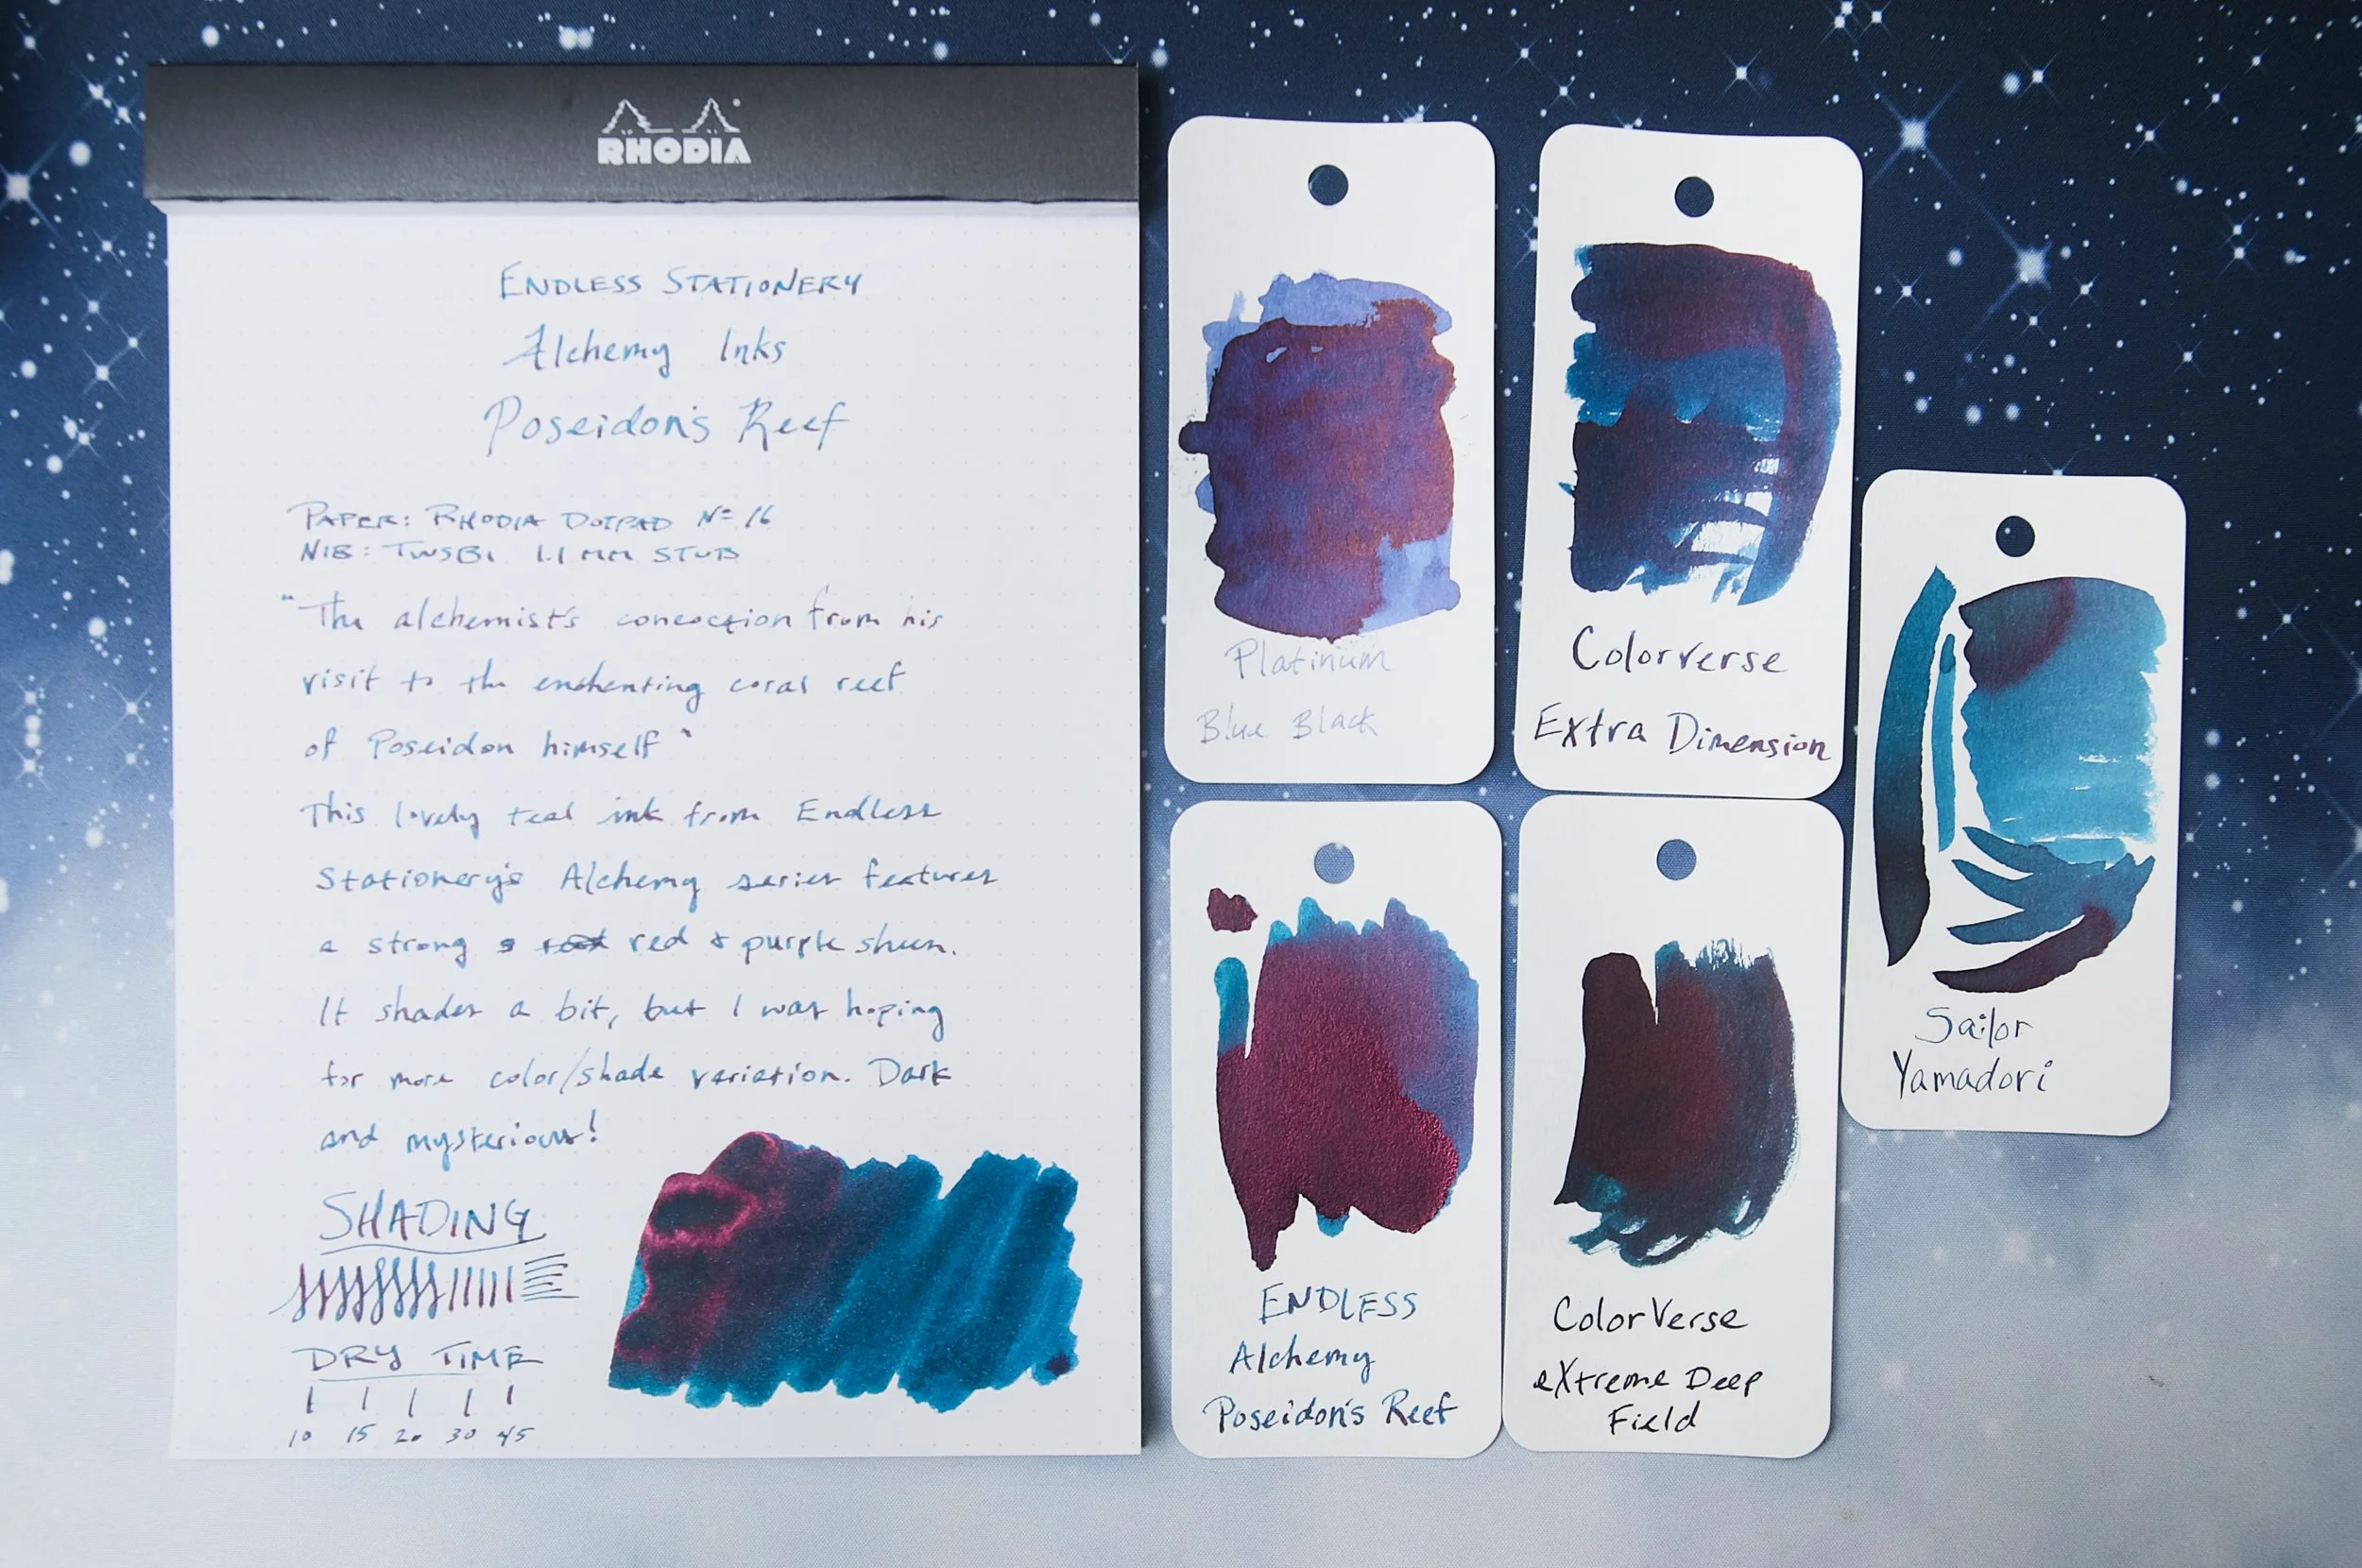 RHODIA
ENDLESS STATIONERY
Alchemy Inks
Poseidon's Reef
PAPER: RHODIA DOTPAD Nº 16
NIB: TWSBI 1.1 MM STUB
"The alchemist's concoction from his
visit to the enchanting coral reef
of Poseidon himself"
This lovely teal ink from Endless
Stationery's Alchemy series features
a strong red & purple sheen.
It shades a bit, but I was hoping
for more color/shade variation. Dark
and mysterious!
SHADING
DRY TIME
10 15 20 30 45
Platinum
Blue Black
Colorverse
Extra Dimension
ENDLESS
Alchemy
Poseidon's Reef
ColorVerse
eXtreme Deep
Field
Sailor
Yamadori